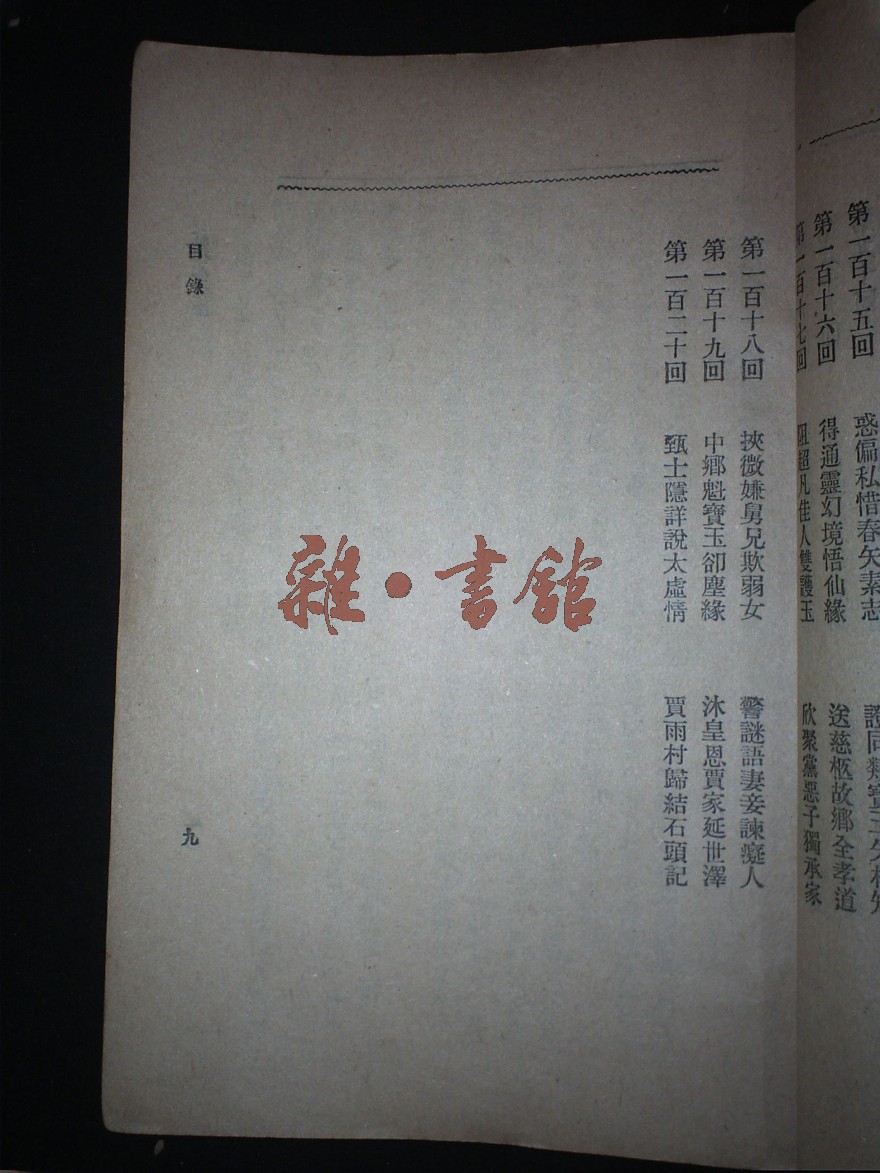 第一百十五回 惑偏私惜春矢素志 證同類寶玉失相知
第一百十六回 得通靈幻境悟仙緣 送慈柩故鄉全孝道
第一百十七回 阻超凡佳人雙護玉 欣聚黨惡子獨承家
第一百十八回 挾微嫌舅兄欺弱女 警謎語妻妾諫癡人
第一百十九回 中鄉魁寶玉卻塵緣 沐皇恩賈家延世澤
第一百二十回 甄士隱詳說太虛情 賈雨村歸結石頭記
目錄
九
雜·書館